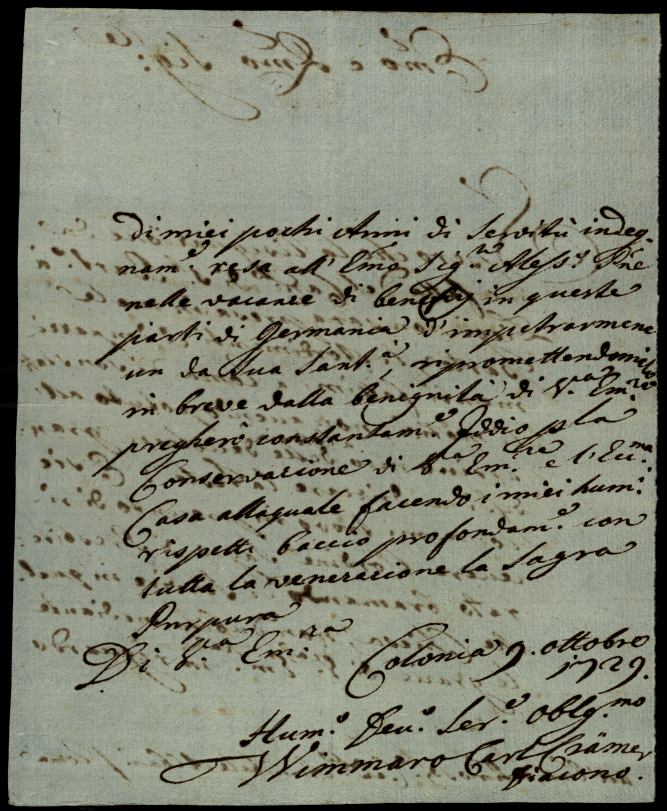 di miei pochi Anni di servitù indeg-
nam.e resa all' Emo Sig.re Aless.o Pñe
nelle vacanze di beneficij in queste
parti di Germania d'impetrarmene
un da Sua Sant.à, ripromettendomilo
in breve dalla benignità di V.ra Em.za
pregherò constantam.e Iddio p la
Conservazione di V.ra Em.za e l'Ecc.ma
Casa alla quale facendo i miei hum.i
rispetti baccio profondam.e con
tutta la venerazione la Sagra
Purpura
Di V.ra Em.za Colonia 9. ottobre
1729.
Hum.o Dev.o Ser.e oblg.mo
Wimmaro Carl Crämer
diacono.